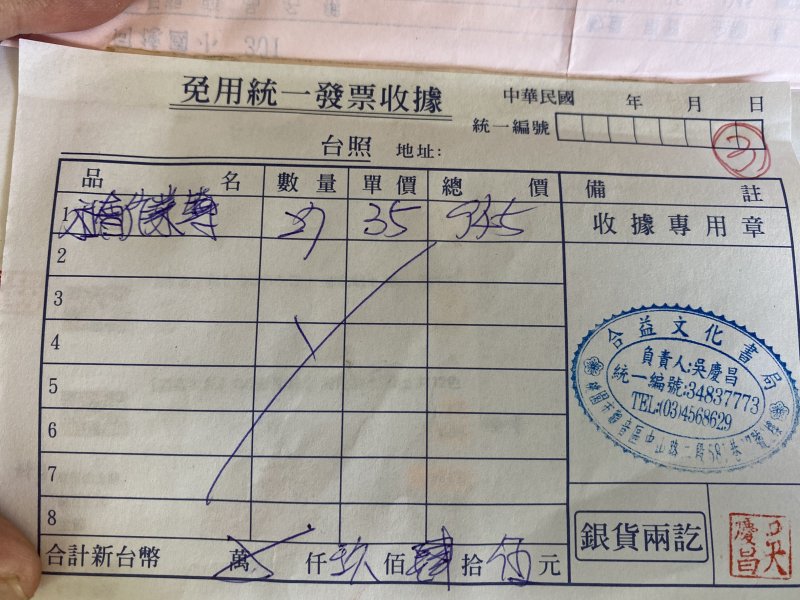 免用統一發票收據
中華民國 年 月 日
統一編號
台照 地址:
品名 數量 單價 總價 備註
1 社會作業簿 27 35 945
收據專用章
2
3
4
5
6
7
8
合益文化書局
負責人:吳慶昌
統一編號:34837773
TEL:(03)4568629
合計新台幣 萬 仟 玖 佰 肆 拾 伍 元
銀貨兩訖
吳慶昌